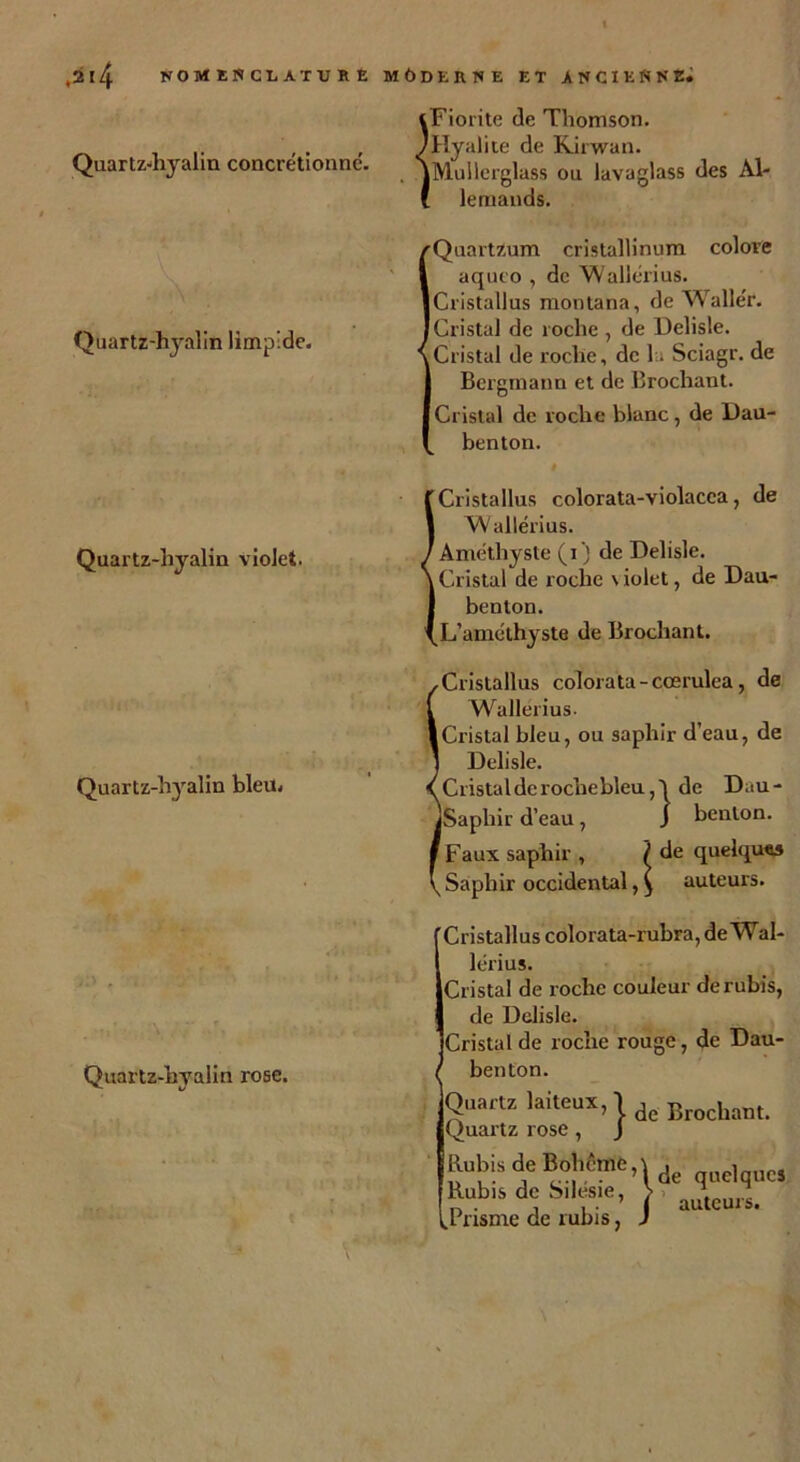 214 NOMENCLATURE MÓDERNE ET ANCIENNE.
Quartz-hyalin concrétionné.
Fiorite de Thomson.
Hyalite de Kirwan.
Mullerglass ou lavaglass des Al-
lemands.
Quartz-hyalin limpide.
Quartzum cristallinum colore
aqueo , de Wallérius.
Cristallus montana, de Wallér.
Cristal de roche , de Delisle.
Cristal de roche, de la Sciagr. de
Bergmann et de Brochant.
Cristal de roche blanc, de Dau-
benton.
Quartz-hyalin violet.
Cristallus colorata-violacea, de
Wallérius.
Améthyste (1) de Delisle.
Cristal de roche violet, de Dau-
benton.
L'améthyste de Brochant.
Quartz-hyalin bleu.
Cristallus colorata-cœrulea, de
Wallerius.
Cristal bleu, ou saphir d'eau, de
Delisle.
Cristal de roche bleu, } de Dau-
Saphir d'eau, } benton.
Faux saphir , } de quelques
Saphir occidental, } auteurs.
Quartz-hyalin rose.
Cristallus colorata-rubra, de Wal-
lérius.
Cristal de roche couleur de rubis,
de Delisle.
Cristal de roche rouge, de Dau-
benton.
Quartz laiteux, } de Brochant.
Quartz rose , }
Rubis de Bohême, } de quelques
Rubis de Silésie, } auteurs.
Prisme de rubis, }